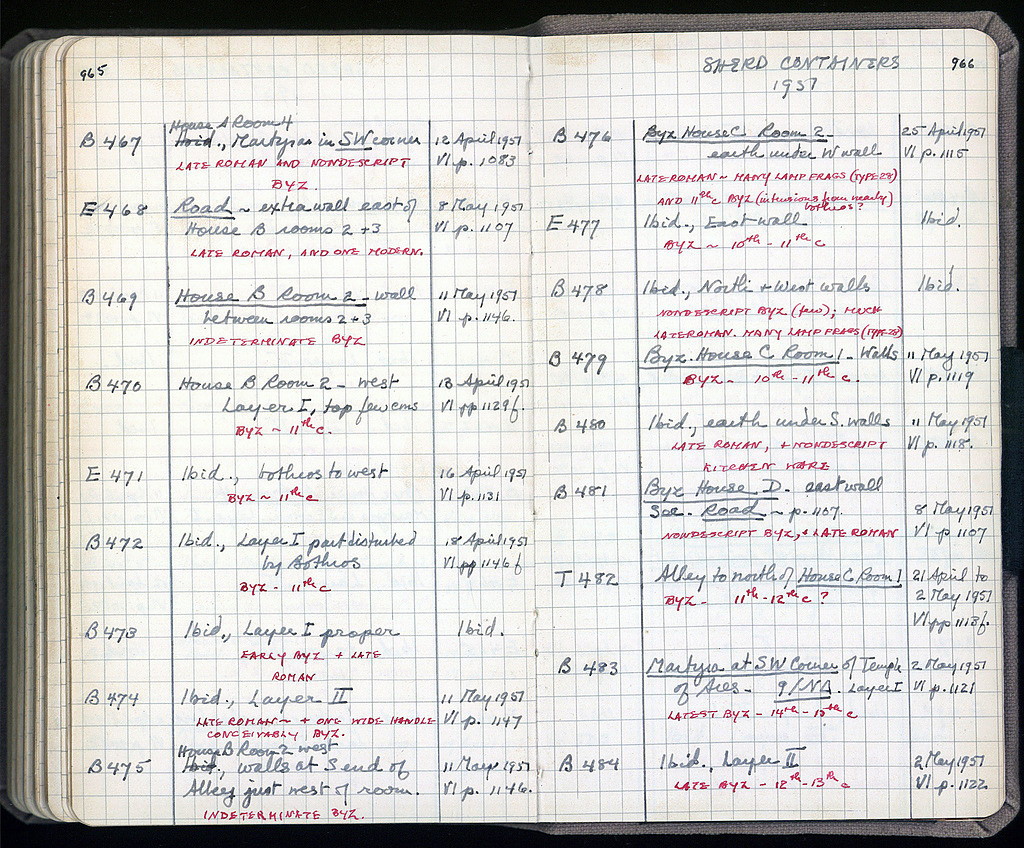 965
House A Room 4
B 467 Ibid., Martyras in SW corner 12 April 1951
LATE ROMAN AND NONDESCRIPT VI p. 1083
BYZ.
E 468 Road ~ extra wall east of 8 May 1951
House B rooms 2 + 3 VI p. 1107
LATE ROMAN, AND ONE MODERN.
B 469 House B Room 2 - wall 11 May 1951
between rooms 2 + 3 VI p. 1146.
INDETERMINATE BYZ
B 470 House B Room 2 - west 13 April 1951
Layer I, top few cms VI pp 1129 f.
BYZ ~ 11th c.
E 471 Ibid., bothros to west 16 April 1951
BYZ ~ 11th c VI p. 1131
B 472 Ibid., Layer I part disturbed 18 April 1951
by Bothros VI pp 1146 f
BYZ - 11th c
B 473 Ibid., Layer I proper Ibid.
EARLY BYZ + LATE
ROMAN
B 474 Ibid., Layer II 11 May 1951
LATE ROMAN ~ + ONE WIDE HANDLE VI p. 1147
CONCEIVABLY BYZ.
House B Room 2 west
B 475 Ibid., walls at S end of 11 May 1951
Alley just west of room. VI p. 1146.
INDETERMINATE BYZ.
SHERD CONTAINERS 966
1951
B 476 Byz House C Room 2 - 25 April 1951
earth under W wall VI p. 1115
LATE ROMAN ~ MANY LAMP FRAGS (TYPE 28)
AND 11th c BYZ (intrusions from nearby
bothros?
E 477 Ibid., East wall Ibid.
BYZ ~ 10th - 11th c
B 478 Ibid., North + West walls Ibid.
NONDESCRIPT BYZ (few); MUCH
LATE ROMAN. MANY LAMP FRAGS (TYPE 28)
B 479 Byz. House C Room 1 - Walls 11 May 1951
BYZ ~ 10th - 11th c. VI p. 1119
B 480 Ibid., earth under S. walls 11 May 1951
LATE ROMAN, + NONDESCRIPT VI p. 1118.
KITCHEN WARE
B 481 Byz House D - east wall
See Road ~ p. 1107. 8 May 1951
NONDESCRIPT BYZ, + LATE ROMAN VI p 1107
T 482 Alley to north of House C Room 1 21 April to
BYZ - 11th - 12th c ? 2 May 1951
VI pp 1113 f.
B 483 Martyra at SW Corner of Temple 2 May 1951
of Ares - 9/NA. Layer I VI p. 1121
LATEST BYZ - 14th - 15th c
B 484 Ibid., Layer II 2 May 1951
LATE BYZ - 12th - 13th c VI p. 1122